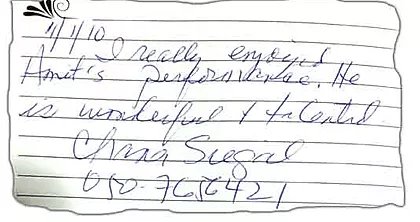 11/1/10 I really enjoyed
Amit's performance. He
is wonderful & talented.
Chana Siegal
050-7656421